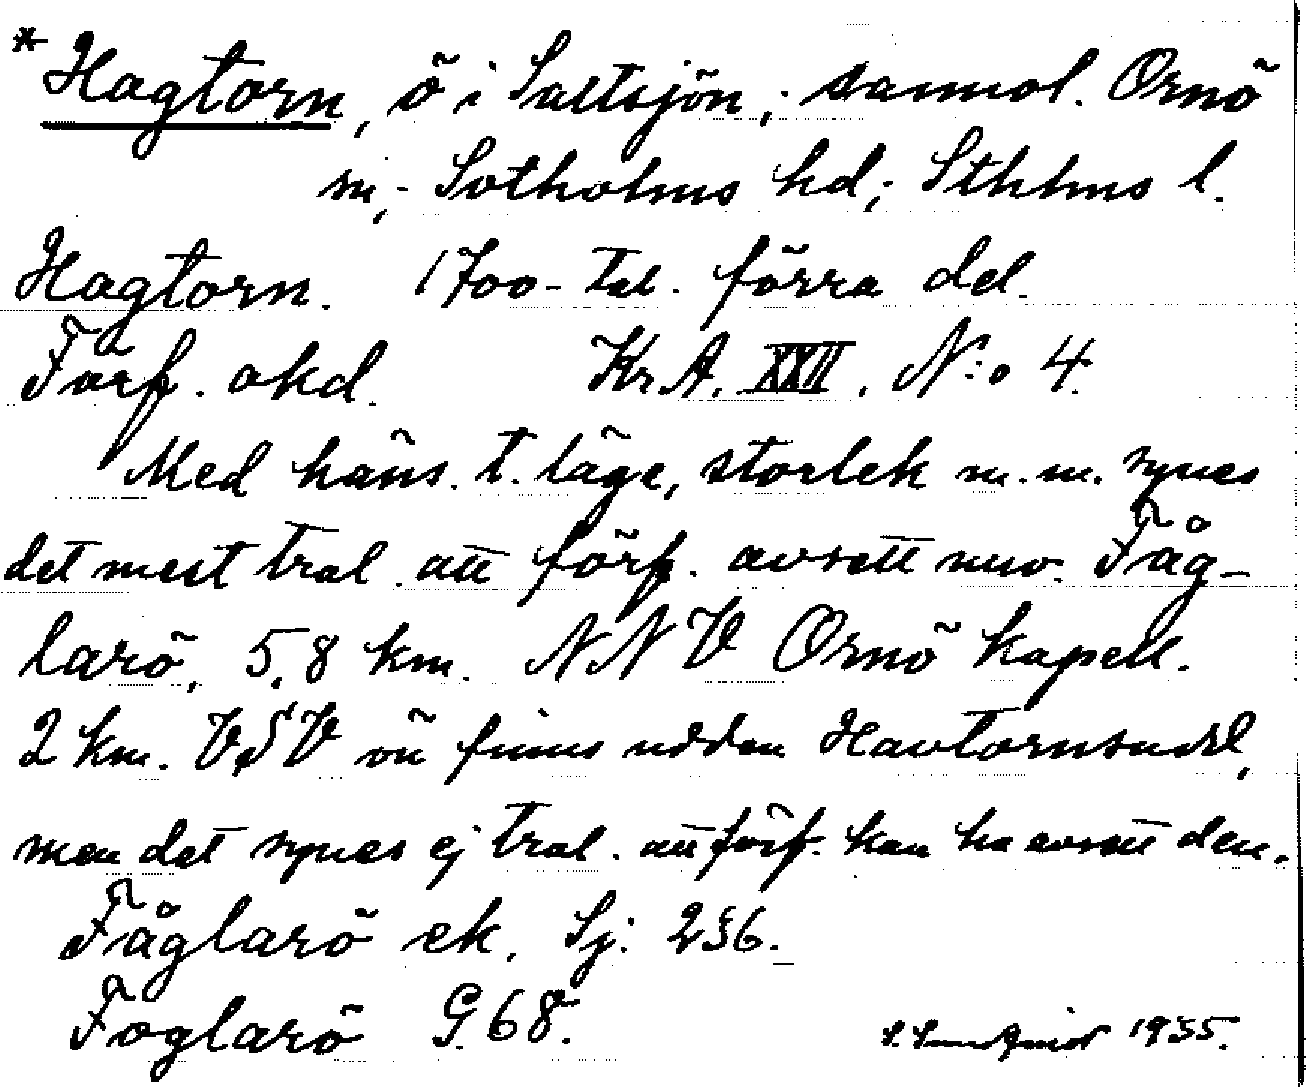 *Hagtorn, ö i Saltsjön; sannol. Ornö
sn; Sotholms hd; Sthlms l.
Hagtorn. 1700-tal. förra del.
Förf. okd. Kr.A. XXII. N:o 4.
Med häns. t. läge, storlek m.m. synes
det mest trol. att förf. avsett nuv. Fåg-
larö, 5,8 km. NNV Ornö kapell.
2 km. VSV om finns udden Havtornsudd,
men det synes ej trol. att förf. kan ha avsett den.
Fåglarö ek. Sj: 236.
Foglarö G. 68.
1935.